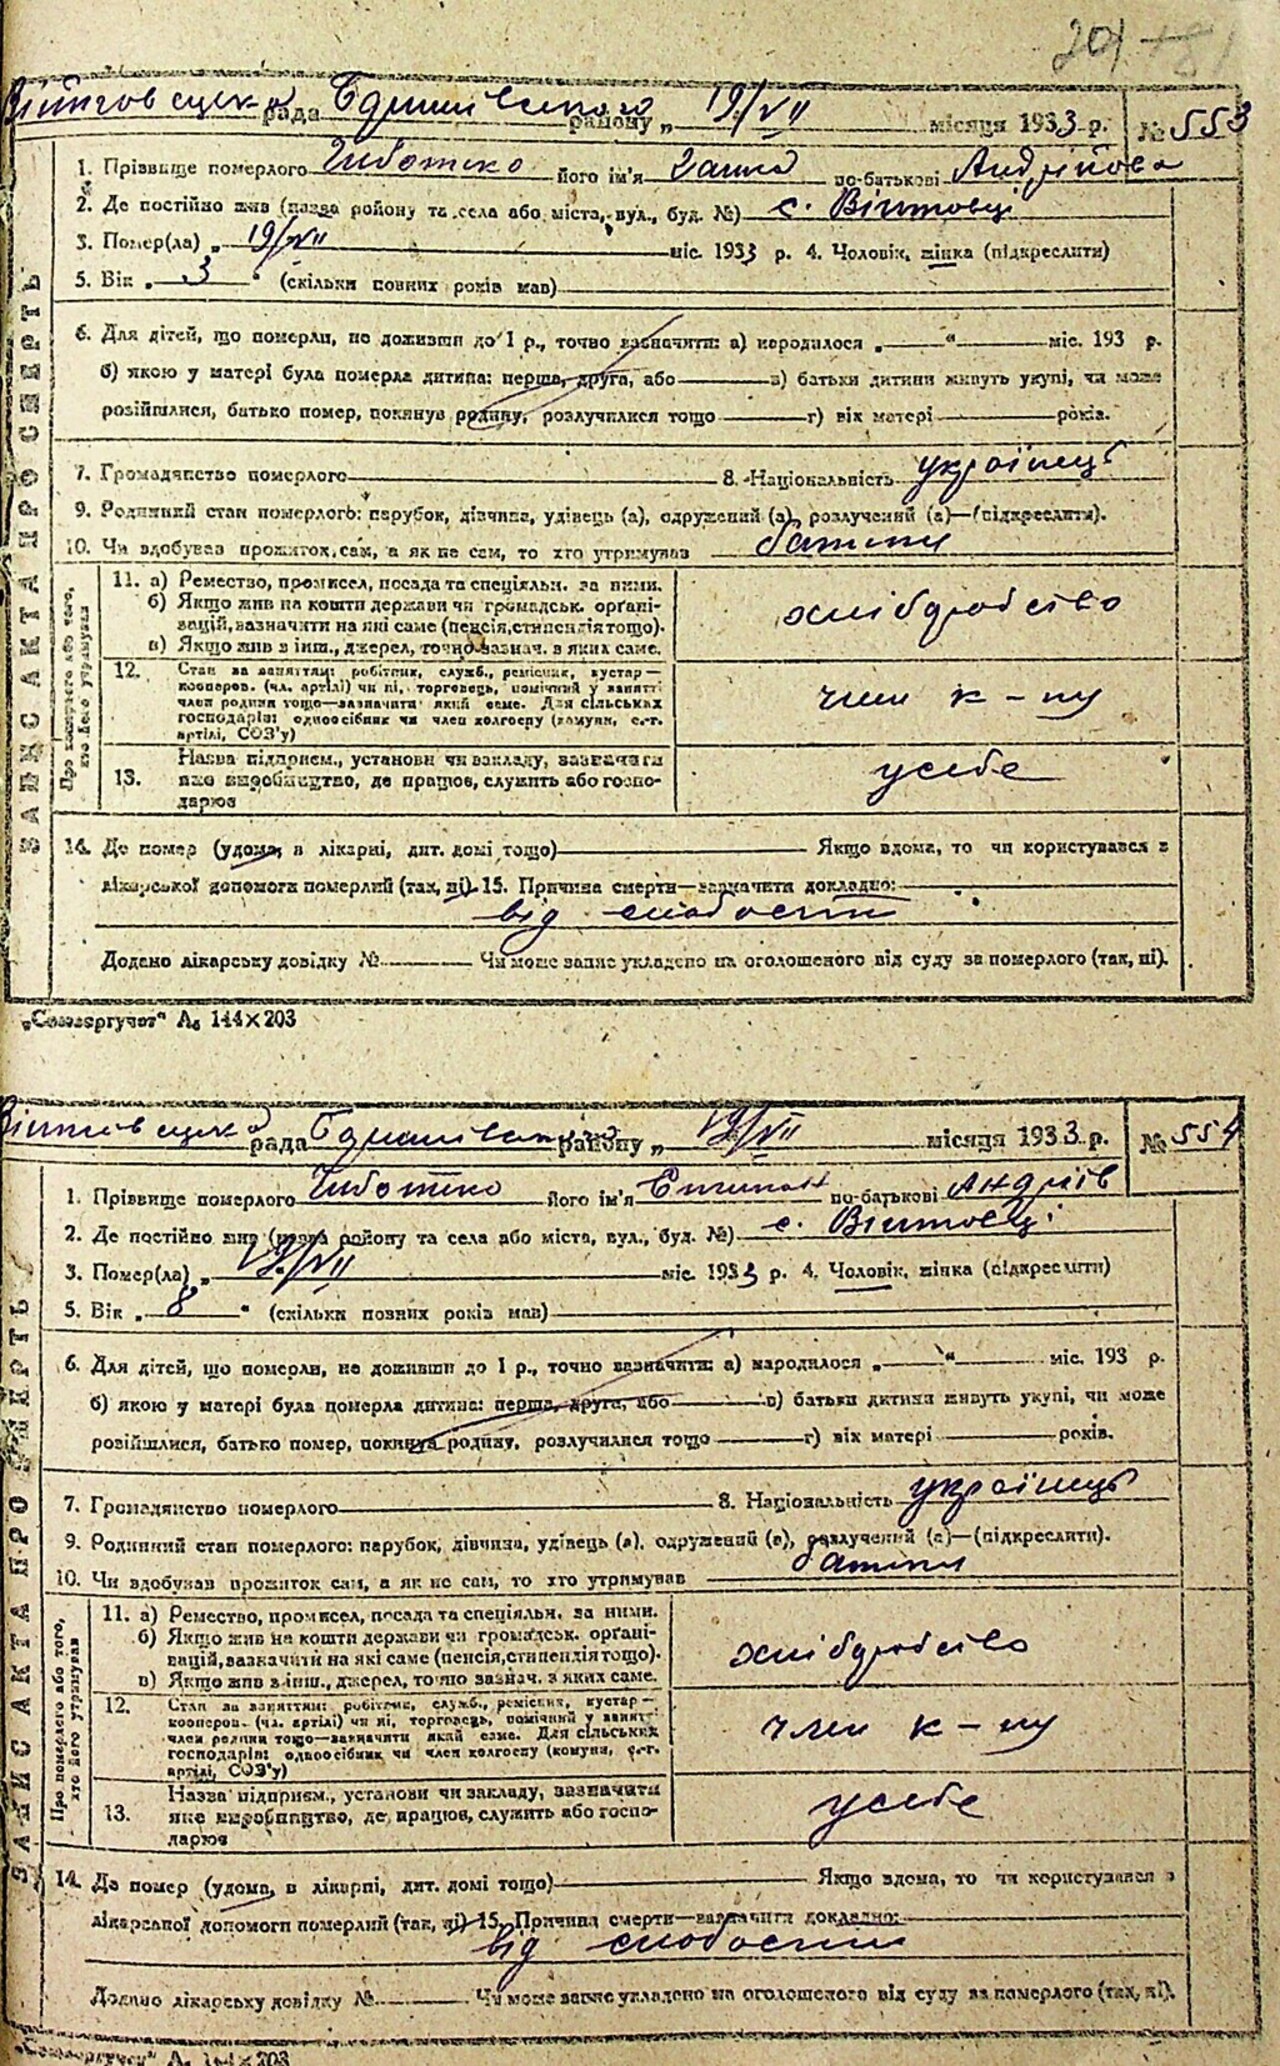 201
рада районе „ 19/VII місяця 1933 р. № 553
ЗАПИС АКТА ПРО СМЕРТЬ
1. Прізвище померлого Чиботко його ім'я Ганна по-батькові Андрійова
2. Де постійно жив (назва району та села або міста, вул., буд. №) с. Війтовці
3. Помер(ла) „ 19/VII міс. 1933 р. 4. Чоловік, жінка (підкреслити)
5. Вік „ 3 “ (скільки повних років мав)
6. Для дітей, що померли, не доживши до 1 р., точно зазначити: а) народилося „ “ міс. 193 р.
б) якою у матері була померла дитина: перша, друга, або в) батьки дитини живуть укупі, чи може
розійшлися, батько помер, покинув родину, розлучилися тощо г) вік матері років.
7. Громадянство померлого 8. Національність українець
9. Родинний стан померлого: парубок, дівчина, удівець (а), одружений (а), розлучений (а)—(підкреслити).
10. Чи здобував прожиток сам, а як не сам, то хто утримував батьки
Про померлого або того, хто його утримував
11. а) Ремество, промисел, посада та спеціяльн. за ними.
б) Якщо жив на кошти держави чи громадськ. органі-
зацій, зазначити на які саме (пенсія, стипендія тощо).
в) Якщо жив з інш., джерел, точно зазнач. з яких саме.
хліборобство
12. Стан за заняттям: робітник, служб., ремісник, кустар—
кооперов. (чл. артілі) чи ні, торговець, помічний у занятті
член родини тощо—зазначити який саме. Для сільських
господарів: одноосібник чи член колгоспу (комуни, с.-г.
артілі, СОЗ'у)
член к-пу
13. Назва підприєм., установи чи закладу, зазначити
яке виробництво, де працює, служить або госпо-
дарює
у себе
14. Де помер (удома, в лікарні, дит. домі тощо) Якщо вдома, то чи користувався з
лікарської допомоги померлий (так, ні) 15. Причина смерти—зазначити докладно:
від слабости
Додано лікарську довідку № Чи може запис укладено на оголошеного від суду за померлого (так, ні).
„Союзоргучет“ А₆ 144×203
рада району „ 19/VII місяця 1933 р. № 554
ЗАПИС АКТА ПРО СМЕРТЬ
1. Прізвище померлого Чиботко його ім'я по-батькові Андріїв
2. Де постійно жив (назва району та села або міста, вул., буд. №) с. Війтовці
3. Помер(ла) „ 19/VII міс. 1933 р. 4. Чоловік, жінка (підкреслити)
5. Вік „ 8 “ (скільки повних років мав)
6. Для дітей, що померли, не доживши до 1 р., точно зазначити: а) народилося „ “ міс. 193 р.
б) якою у матері була померла дитина: перша, друга, або в) батьки дитини живуть укупі, чи може
розійшлися, батько помер, покинув родину, розлучилися тощо г) вік матері років.
7. Громадянство померлого 8. Національність українець
9. Родинний стан померлого: парубок, дівчина, удівець (а), одружений (а), розлучений (а)—(підкреслити).
10. Чи здобував прожиток сам, а як не сам, то хто утримував батьки
Про померлого або того, хто його утримував
11. а) Ремество, промисел, посада та спеціяльн. за ними.
б) Якщо жив на кошти держави чи громадськ. органі-
зацій, зазначити на які саме (пенсія, стипендія тощо).
в) Якщо жив з інш., джерел, точно зазнач. з яких саме.
хліборобство
12. Стан за заняттям: робітник, служб., ремісник, кустар—
кооперов. (чл. артілі) чи ні, торговець, помічний у занятті
член родини тощо—зазначити який саме. Для сільських
господарів: одноосібник чи член колгоспу (комуни, с.-г.
артілі, СОЗ'у)
член к-пу
13. Назва підприєм., установи чи закладу, зазначити
яке виробництво, де працює, служить або госпо-
дарює
у себе
14. Де помер (удома, в лікарні, дит. домі тощо) Якщо вдома, то чи користувався з
лікарської допомоги померлий (так, ні) 15. Причина смерти—зазначити докладно:
від слабости
Додано лікарську довідку № Чи може запис укладено на оголошеного від суду за померлого (так, ні).
„Союзоргучет“ А₆ 144×203